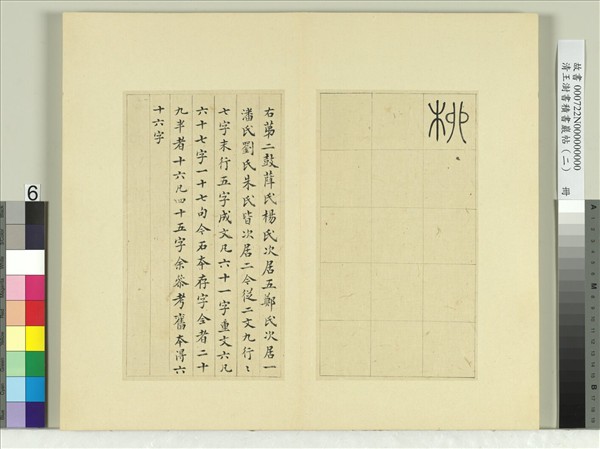 故書000722N000000000
清王澍書積書巖帖(二) 冊
桃
右苐二鼓薛氏楊氏次居五鄭氏次居一
潘氏劉氏朱氏皆次居二今從二文九行〻
七字末行五字成文凡六十一字重文六凡
六十七字一十七句今石本存字全者二十
九半者十六凡四十五字余叅考舊本淂六
十六字
6